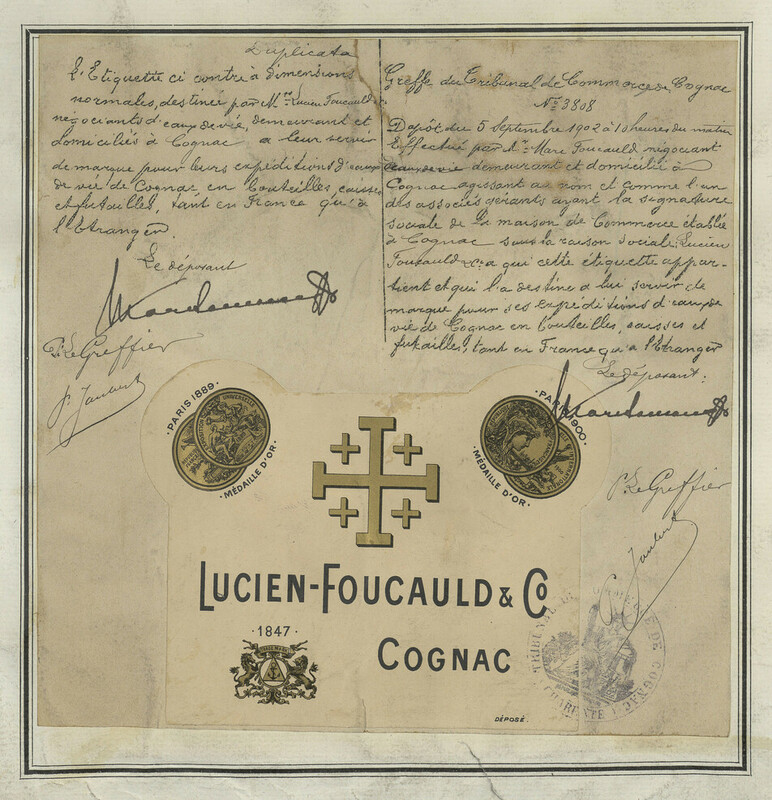 Duplicata
L'Etiquette ci contre à dimensions
normales, destinée par M.rs Lucien Foucauld &
négociants d'eaux de vie, demeurant et
domiciliés à Cognac a leur servir
de marque pour leurs expéditions d'eaux
de vie de Cognac en bouteilles, caisses
et futailles, tant en France qu'à
l'Etranger.
Le déposant
P. Le Greffier
P. Jaubert
Greffe du Tribunal de Commerce de Cognac
No 3808
Dépôt du 5 Septembre 1902 à 10 heures du matin
Effectué par M. Marc Foucauld négociant
d'eaux de vie demeurant et domicilié à
Cognac agissant au nom et comme l'un
des associés gérants ayant la signature
sociale de la maison de Commerce établie
à Cognac sous la raison sociale Lucien
Foucauld & Co a qui cette étiquette appar-
tient et qui l'a destine a lui servir de
marque pour ses expéditions d'eaux de
vie de Cognac en bouteilles, caisses et
futailles, tant en France qu'a l'Etranger
Le déposant.
P. Le Greffier
P. Jaubert
PARIS 1889
MÉDAILLE D'OR
PARIS 1900
MÉDAILLE D'OR
LUCIEN-FOUCAULD & Co
1847
COGNAC
DÉPOSÉ.
TRIBUNAL DE COMMERCE DE COGNAC
CHARENTE